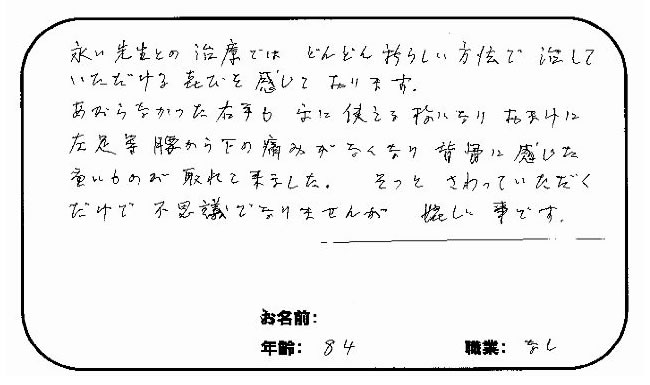 永い先生との治療では どんどん新らしい方法で 治して
いただける喜びを感じております。
あがらなかった右手も 楽に使える様になり おまけに
左足等 腰から下の痛みがなくなり 背骨に感じた
重いものが取れて来ました。 そっと さわっていただく
だけで 不思議でなりませんが 嬉しい事です。
お名前:
年齢: 84 職業: なし